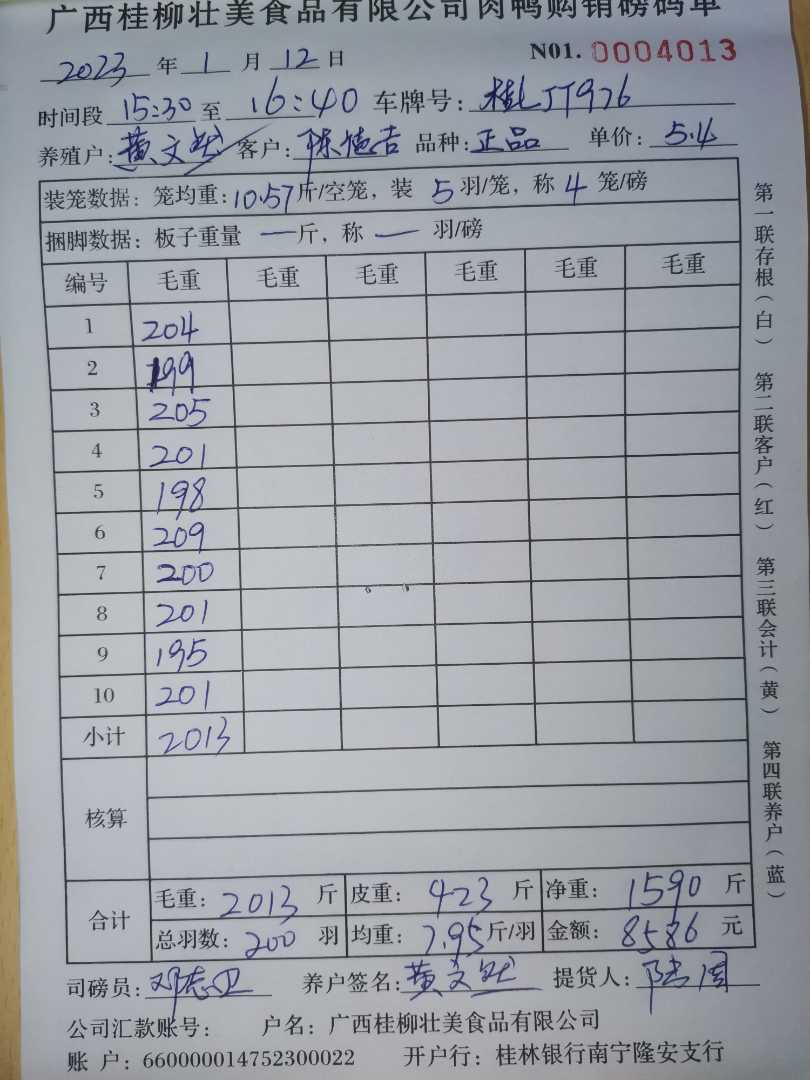 广西桂柳壮美食品有限公司肉鸭购销磅码单
2023 年 1 月 12 日 N01. 0004013
时间段 15:30 至 16:40 车牌号: 桂JT976
养殖户: 黄文 客户: 陈 吉 品种: 正品 单价: 5.4
装笼数据: 笼均重: 10.57 斤/空笼, 装 5 羽/笼, 称 4 笼/磅
捆脚数据: 板子重量 一 斤, 称 一 羽/磅
编号 毛重 毛重 毛重 毛重 毛重 毛重
1 204
2 199
3 205
4 201
5 198
6 209
7 200
8 201
9 195
10 201
小计 2013
核算
合计 毛重: 2013 斤 皮重: 423 斤 净重: 1590 斤
总羽数: 200 羽 均重: 7.95 斤/羽 金额: 8586 元
司磅员: 邓志卫 养户签名: 黄文 提货人: 陆
公司汇款账号: 户名: 广西桂柳壮美食品有限公司
账 户: 660000014752300022 开户行: 桂林银行南宁隆安支行
第一联存根(白) 第二联客户(红) 第三联会计(黄) 第四联养户(蓝)